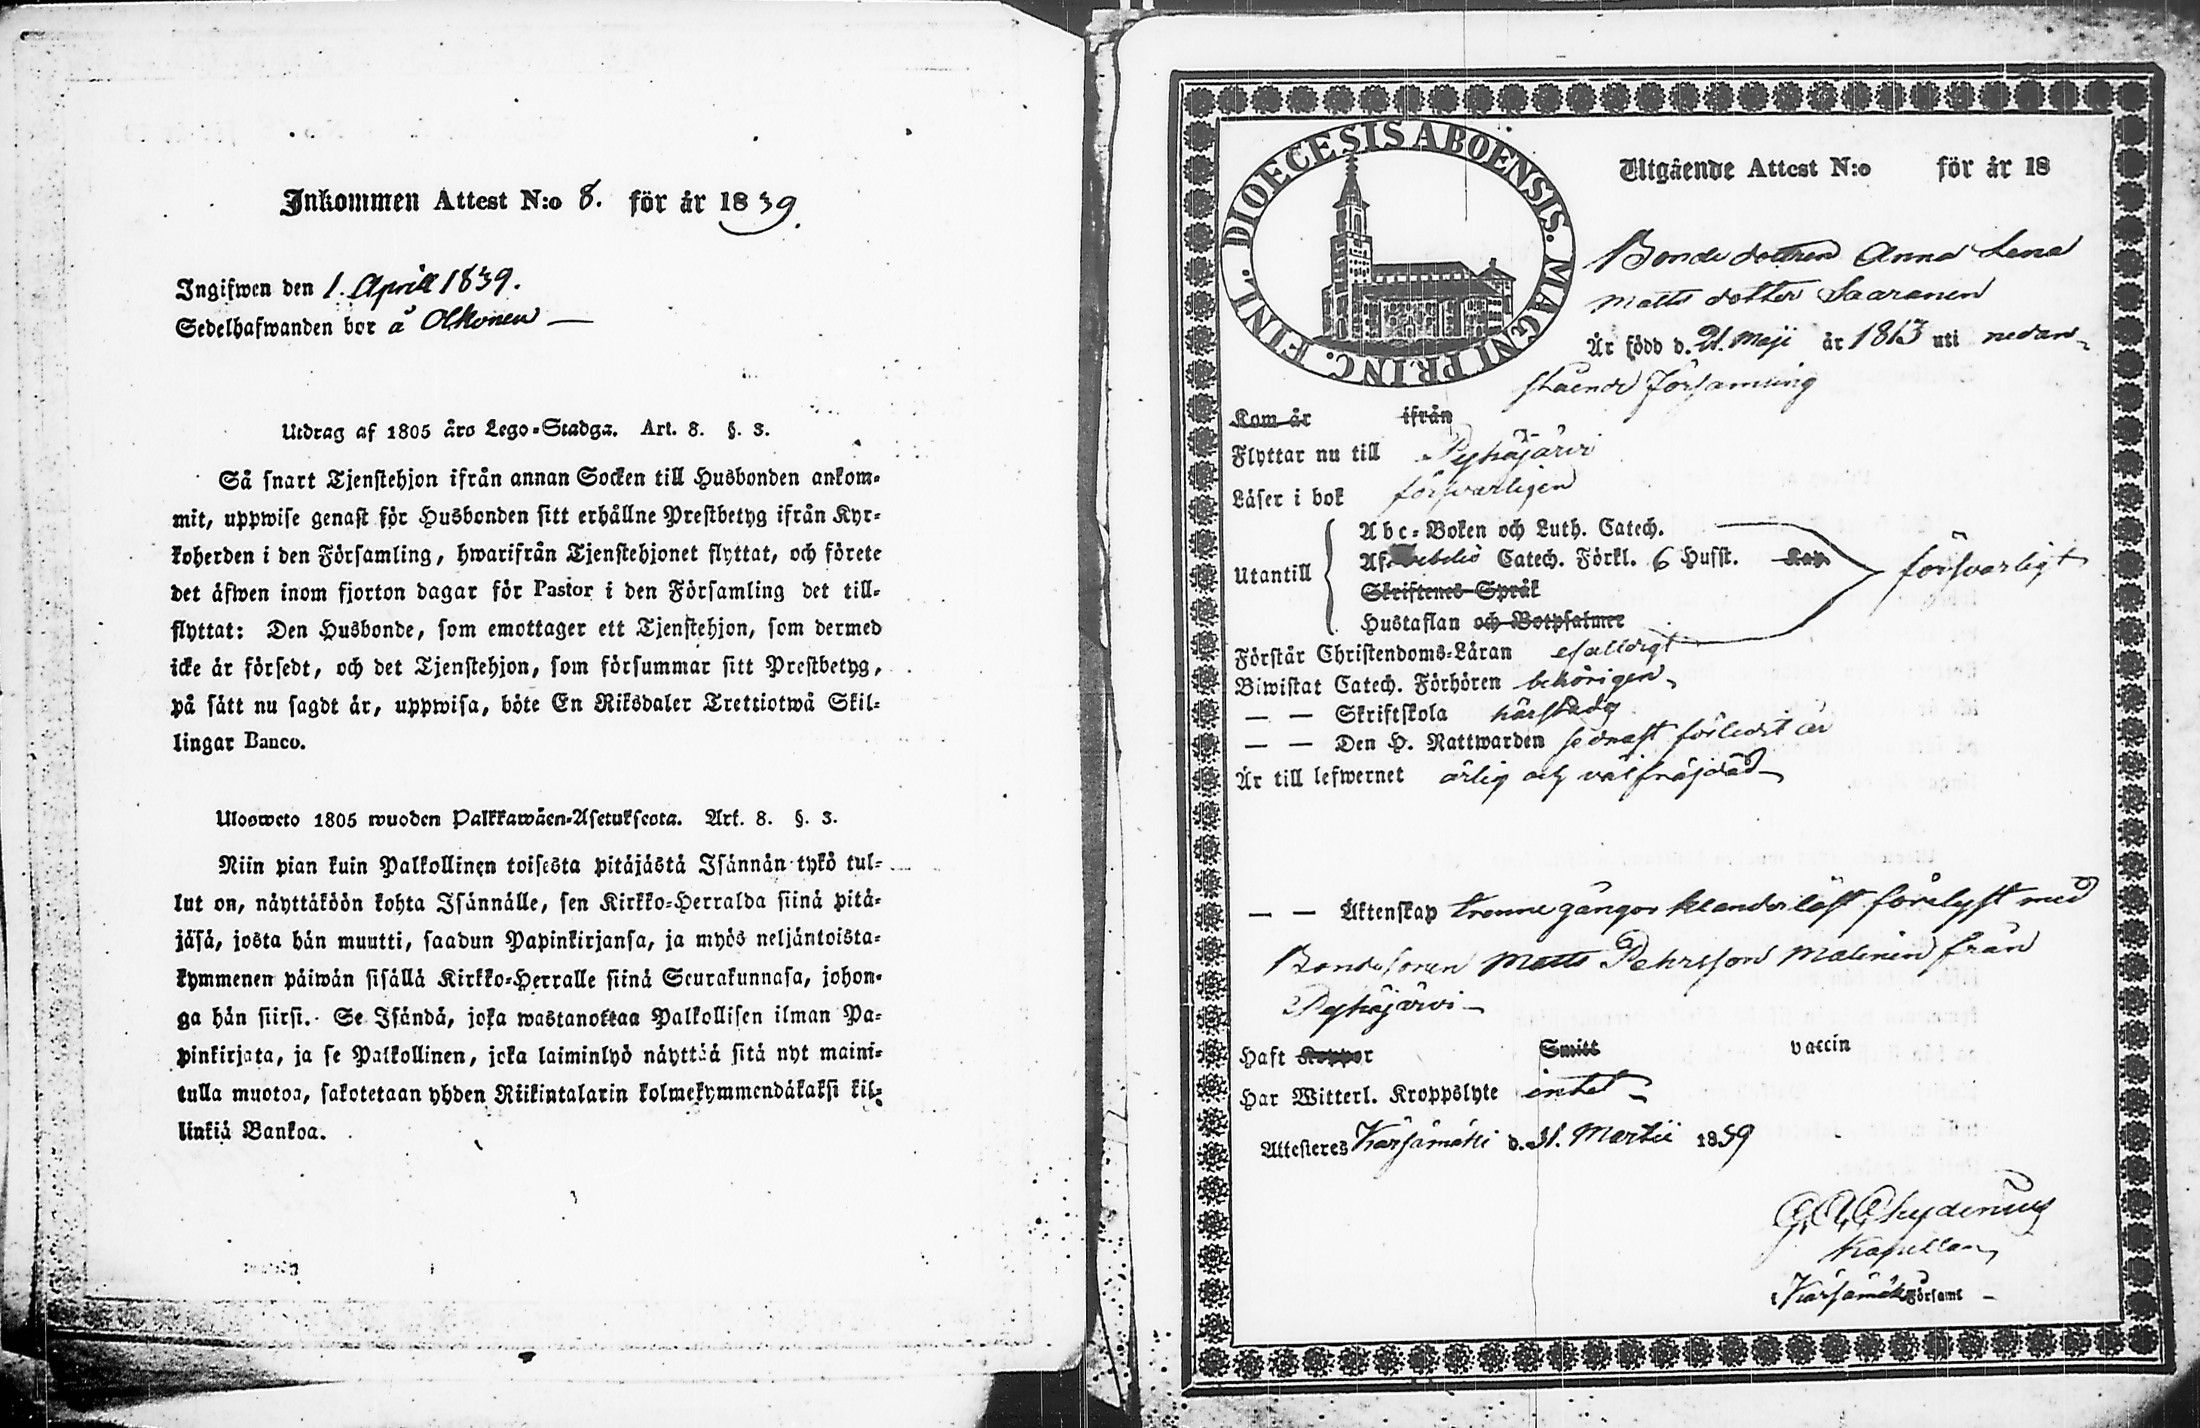 Inkommen Attest N:o 8. för år 1839.
Ingifwen den 1. April 1839.
Sedelhafwanden bor å Olkonen —
Utdrag af 1805 års Lego-Stadga. Art. 8. §. 3.
Så snart Tjenstehjon ifrån annan Socken till Husbonden ankom-
mit, uppwise genast för Husbonden sitt erhållne Prestbetyg ifrån Kyr-
koherden i den Församling, hwarifrån Tjenstehjonet flyttat, och förete
det äfwen inom fjorton dagar för Pastor i den Församling det till-
flyttat: Den Husbonde, som emottager ett Tjenstehjon, som dermed
icke är försedt, och det Tjenstehjon, som försummar sitt Prestbetyg,
på sätt nu sagdt är, uppwisa, böte En Riksdaler Trettiotwå Skil-
lingar Banco.
Ulosweto 1805 wuoden Palkkawäen-Asetuksesta. Art. 8. §. 3.
Niin pian kuin Palkollinen toisesta pitäjästä Isännän tykö tul-
lut on, näyttäköön kohta Isännälle, sen Kirkko-Herralda siinä pitä-
jäsä, josta hän muutti, saadun Papinkirjansa, ja myös neljäntoista-
kymmenen päiwän sisällä Kirkko-Herralle siinä Seurakunnasa, johon-
ga hän siirsi. Se Isändä, joka wastanottaa Palkollisen ilman Pa-
pinkirjata, ja se Palkollinen, joka laiminlyö näyttää sitä nyt maini-
tulla muotoa, sakotetaan yhden Riikintalarin kolmekymmendäkaksi kil-
linkiä Bankoa.
DIOECESIS ABOËNSIS. MAGNI PRINC. FINL.
Utgående Attest N:o för år 18
Bonde dottren Anna Lena
Matts dotter Saaranen
Är född d. 21. Maji år 1813 uti nedan-
stående Församling
Kom år ifrån
Flyttar nu till Pyhäjärvi
Läser i bok försvarligen
Utantill
Abc-Boken och Luth. Catech.
Af Catech. Förkl. 6 Husst. Kap.
Skriftenes Språk
Hustaflan och Botpsalmer
försvarligt
Förstår Christendoms-Läran enfaldigt
Biwistat Catech. Förhören behörigen
— — Skriftskola härstädes
— — Den H. Nattwarden sednast förledit år
Är till lefwernet ärlig och välfräjdad
— — Äktenskap trenne gångor klanderlöst förelyst med
Bondesonen Matts Pehrsson Malinen från
Pyhäjärvi —
Haft Koppor Smitt vaccin
Har Witterl. Kroppslyte intet
Attesteres Kärsämäki d. 31. Martii 1839
Chydenius
Kapellan
i Kärsämäki Församl